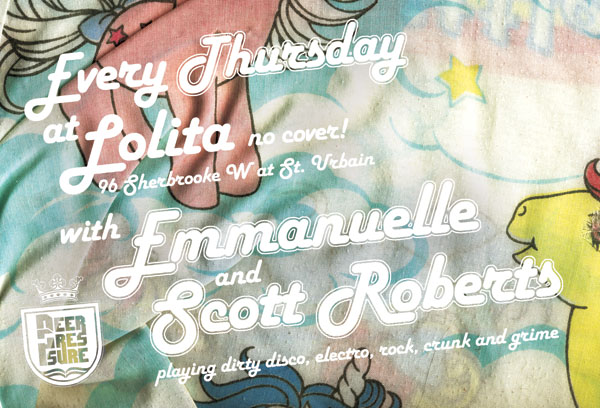 Every Thursday
at Lolita no cover!
96 Sherbrooke W at St. Urbain
with Emmanuelle
and
Scott Roberts
playing dirty disco, electro, rock, crunk and grime
PEER
PRES
SURE